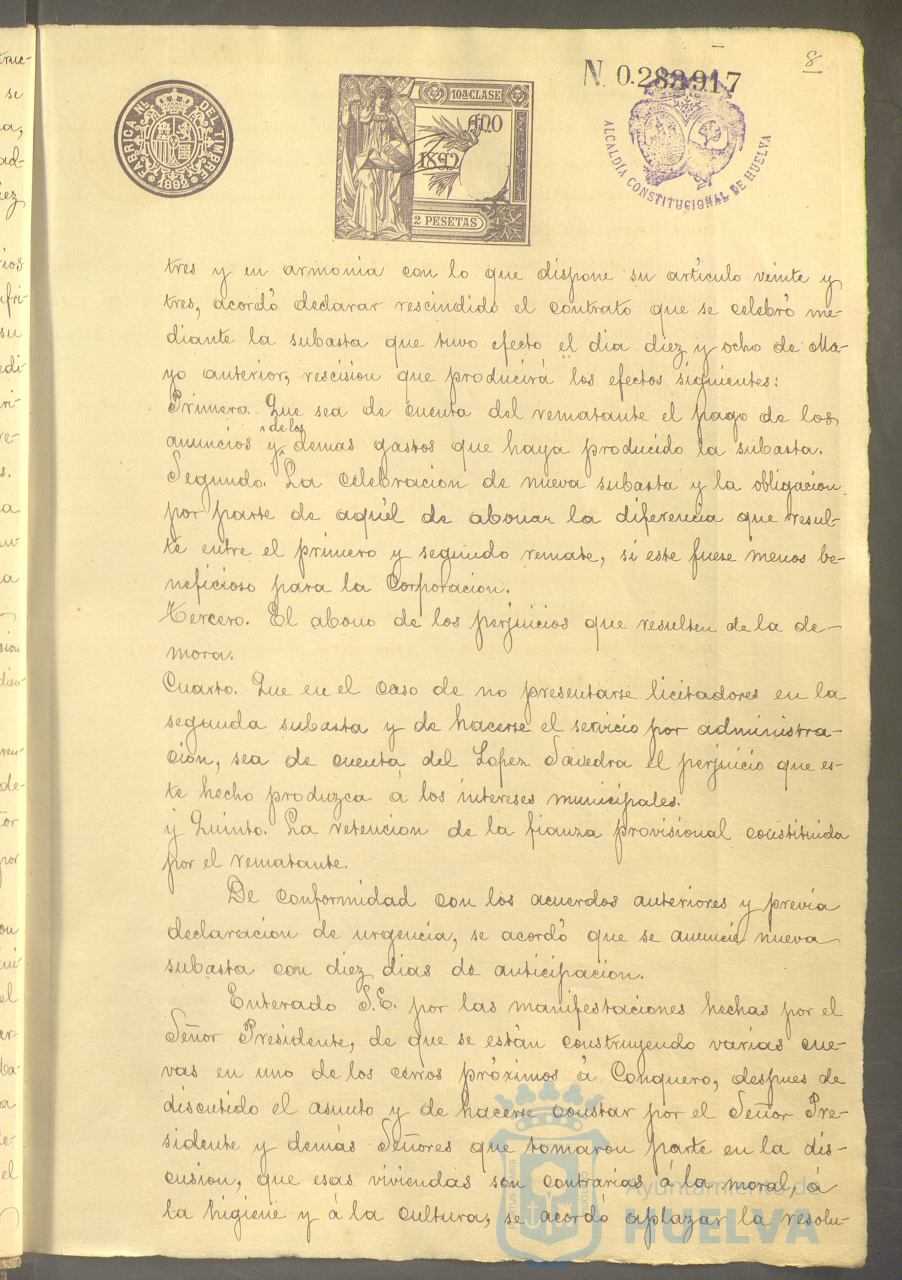 8
N. 0.288.917
FABRICA NAL. DEL TIMBRE
1892
10ª CLASE
AÑO
1892
2 PESETAS
ALCALDIA CONSTITUCIONAL DE HUELVA
tres y en armonia con lo que dispone su artículo veinte y
tres, acordó declarar rescindido el contrato que se celebró me-
diante la subasta que tuvo efecto el dia diez y ocho de Ma-
yo anterior, rescision que producirá los efectos siguientes:
Primero. Que sea de cuenta del rematante el pago de los
anuncios y de los demas gastos que haya producido la subasta.
Segundo. La celebracion de nueva subasta y la obligacion
por parte de aquél de abonar la diferencia que resul-
te entre el primero y segundo remate, si este fuese menos be-
neficioso para la Corporacion.
Tercero. El abono de los perjuicios que resulten de la de-
mora.
Cuarto. Que en el caso de no presentarse licitadores en la
segunda subasta y de hacerse el servicio por administra-
cion, sea de cuenta del Lopez Saavedra el perjuicio que es-
te hecho produzca á los intereses municipales.
y Quinto. La retencion de la fianza provisional constituida
por el rematante.
De conformidad con los acuerdos anteriores y previa
declaracion de urgencia, se acordó que se anuncie nueva
subasta con diez dias de anticipacion.
Enterado S.E. por las manifestaciones hechas por el
Señor Presidente, de que se están construyendo varias cue-
vas en uno de los cerros próximos á Conquero, despues de
discutido el asunto y de hacerse constar por el Señor Pre-
sidente y demás Señores que tomaron parte en la dis-
cusion, que esas viviendas son contrarias á la moral, á
la higiene y á la cultura, se acordó aplazar la resolu-
Ayuntamiento de
HUELVA